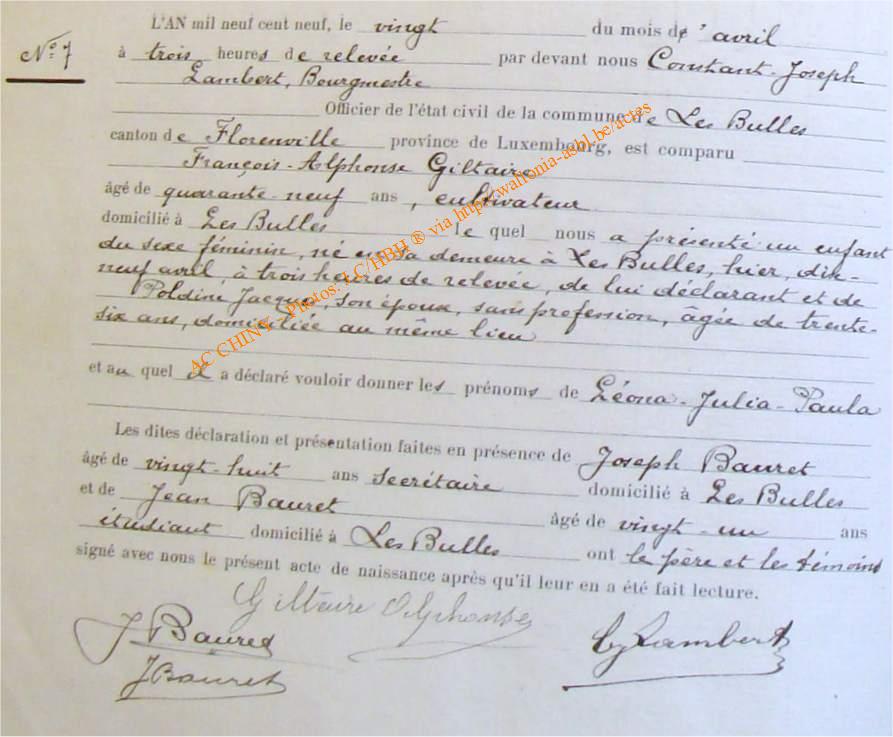 L'AN mil neuf cent neuf, le vingt du mois de avril
N° 7
à trois heures de relevée par devant nous Constant-Joseph
Lambert, Bourgmestre
Officier de l'état civil de la commune de Les Bulles
canton de Florenville province de Luxembourg, est comparu
François-Alphonse Giltaire
âgé de quarante-neuf ans, cultivateur
domicilié à Les Bulles le quel nous a présenté un enfant
du sexe féminin, né en sa demeure à Les Bulles, hier, dix-
neuf avril, à trois heures de relevée, de lui déclarant et de
Poldine Jacques, son épouse, sans profession, âgée de trente-
six ans, domiciliée au même lieu
et au quel il a déclaré vouloir donner les prénoms de Léona-Julia-Paula
Les dites déclaration et présentation faites en présence de Joseph Bauret
âgé de vingt-huit ans secrétaire domicilié à Les Bulles
et de Jean Bauret âgé de vingt-un ans
étudiant domicilié à Les Bulles ont le père et les témoins
signé avec nous le présent acte de naissance après qu'il leur en a été fait lecture.
Giltaire Alphonse
J Bauret
CJ Lambert
J Bauret
AC CHINY - Photos: LC/HBH ® via http://wallonia-asbl.be/actes